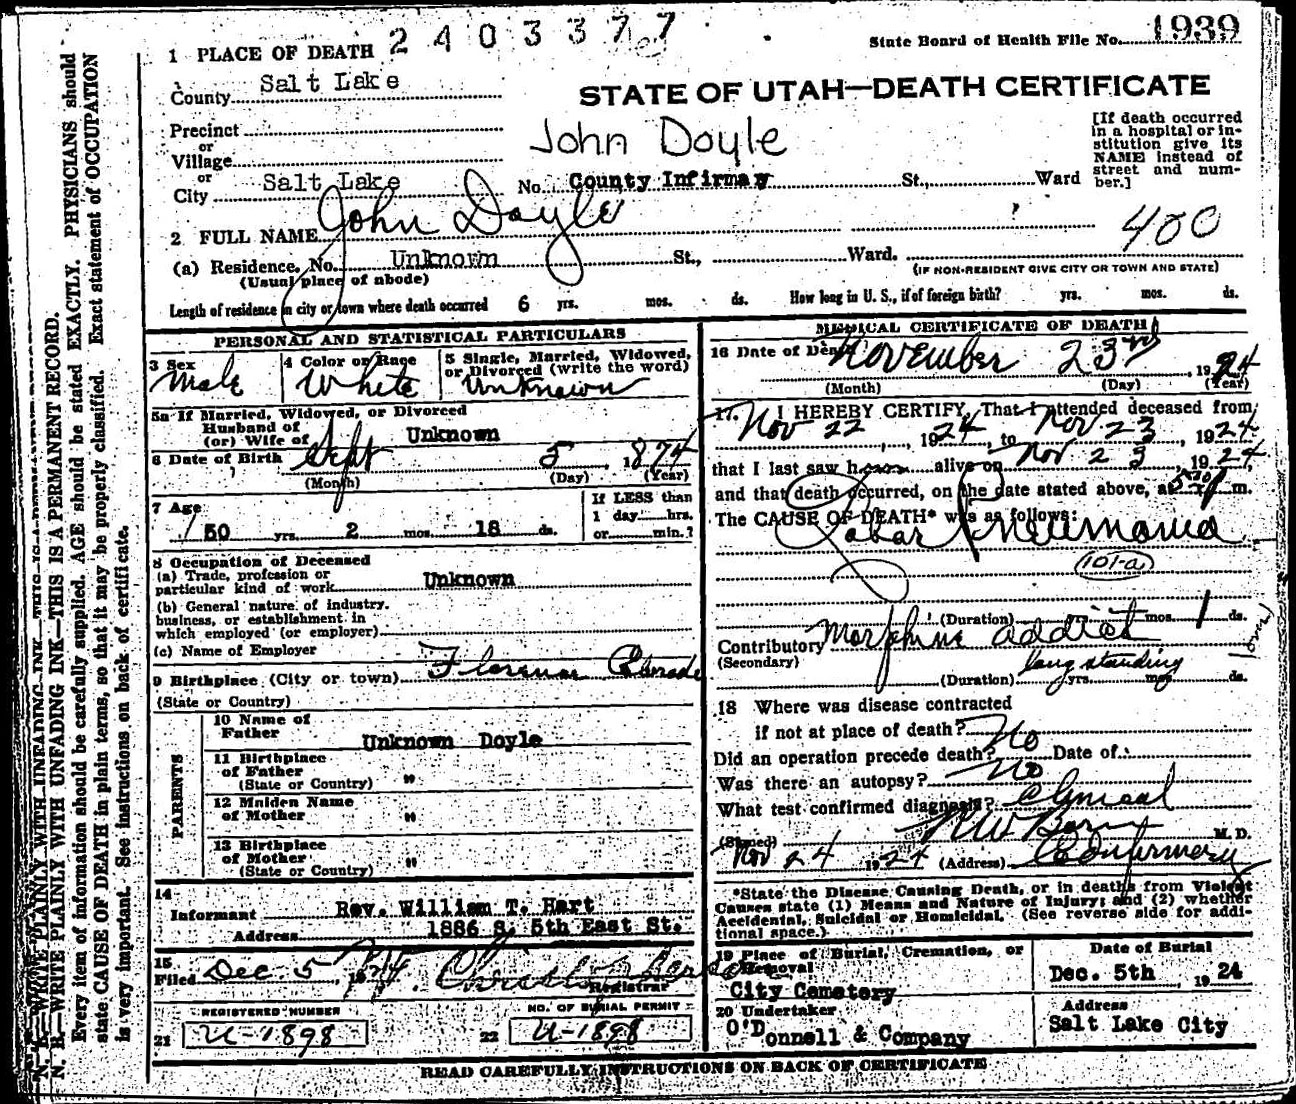 2403377
State Board of Health File No. 1939
1 PLACE OF DEATH
County Salt Lake
STATE OF UTAH—DEATH CERTIFICATE
Precinct
or
Village
or
City Salt Lake No. County Infirmay St., Ward
John Doyle
[If death occurred
in a hospital or in-
stitution give its
NAME instead of
street and num-
ber.]
2 FULL NAME John Doyle
400
(a) Residence, No. Unknown St., Ward.
(Usual place of abode)
(IF NON-RESIDENT GIVE CITY OR TOWN AND STATE)
Length of residence in city or town where death occurred 6 yrs. mos. ds. How long in U. S., if of foreign birth? yrs. mos. ds.
PERSONAL AND STATISTICAL PARTICULARS
3 Sex
Male
4 Color or Race
White
5 Single, Married, Widowed,
or Divorced (write the word)
Unknown
5a If Married, Widowed, or Divorced
Husband of
(or) Wife of Unknown
6 Date of Birth Sept 5, 1874
(Month) (Day) (Year)
7 Age
50 yrs. 2 mos. 18 ds.
If LESS than
1 day hrs.
or min.?
8 Occupation of Deceased
(a) Trade, profession or
particular kind of work Unknown
(b) General nature of industry.
business, or establishment in
which employed (or employer)
(c) Name of Employer
9 Birthplace (City or town) Florence Colorado
(State or Country)
PARENTS
10 Name of
Father Unknown Doyle
11 Birthplace
of Father "
(State or Country)
12 Maiden Name
of Mother "
13 Birthplace
of Mother "
(State or Country)
14
Informant Rev. William T. Hart
Address 1886 S. 5th East St.
15
Filed Dec. 5, 1924.
Registrar
REGISTERED NUMBER
21 U-1898
NO. OF BURIAL PERMIT
22 U-1898
MEDICAL CERTIFICATE OF DEATH
16 Date of Death November 23rd, 1924
(Month) (Day) (Year)
17. I HEREBY CERTIFY, That I attended deceased from
Nov 22, 1924, to Nov 23, 1924
that I last saw h alive on Nov 23, 1924,
and that death occurred, on the date stated above, at 530 P m.
The CAUSE OF DEATH* was as follows:
Lobar Pneumonia
101-a
(Duration) mos. 1 ds.
Contributory Morphine addict
(Secondary)
long standing
(Duration) yrs. mos. ds.
18 Where was disease contracted
if not at place of death?
Did an operation precede death? No Date of
Was there an autopsy? No
What test confirmed diagnosis? Clinical
(Signed) M. D.
Nov 24 1924 (Address) Co Infirmery
*State the Disease Causing Death, or in deaths from Violent
Causes state (1) Means and Nature of Injury; and (2) whether
Accidental, Suicidal or Homicidal. (See reverse side for addi-
tional space.)
19 Place of Burial, Cremation, or
Removal
City Cemetery
Date of Burial
Dec. 5th, 1924
20 Undertaker
O'Donnell & Company
Address
Salt Lake City
READ CAREFULLY INSTRUCTIONS ON BACK OF CERTIFICATE
N. B.—WRITE PLAINLY WITH UNFADING INK—THIS IS A PERMANENT RECORD.
Every item of information should be carefully supplied. AGE should be stated EXACTLY. PHYSICIANS should
state CAUSE OF DEATH in plain terms, so that it may be properly classified. Exact statement of OCCUPATION
is very important. See instructions on back of certificate.